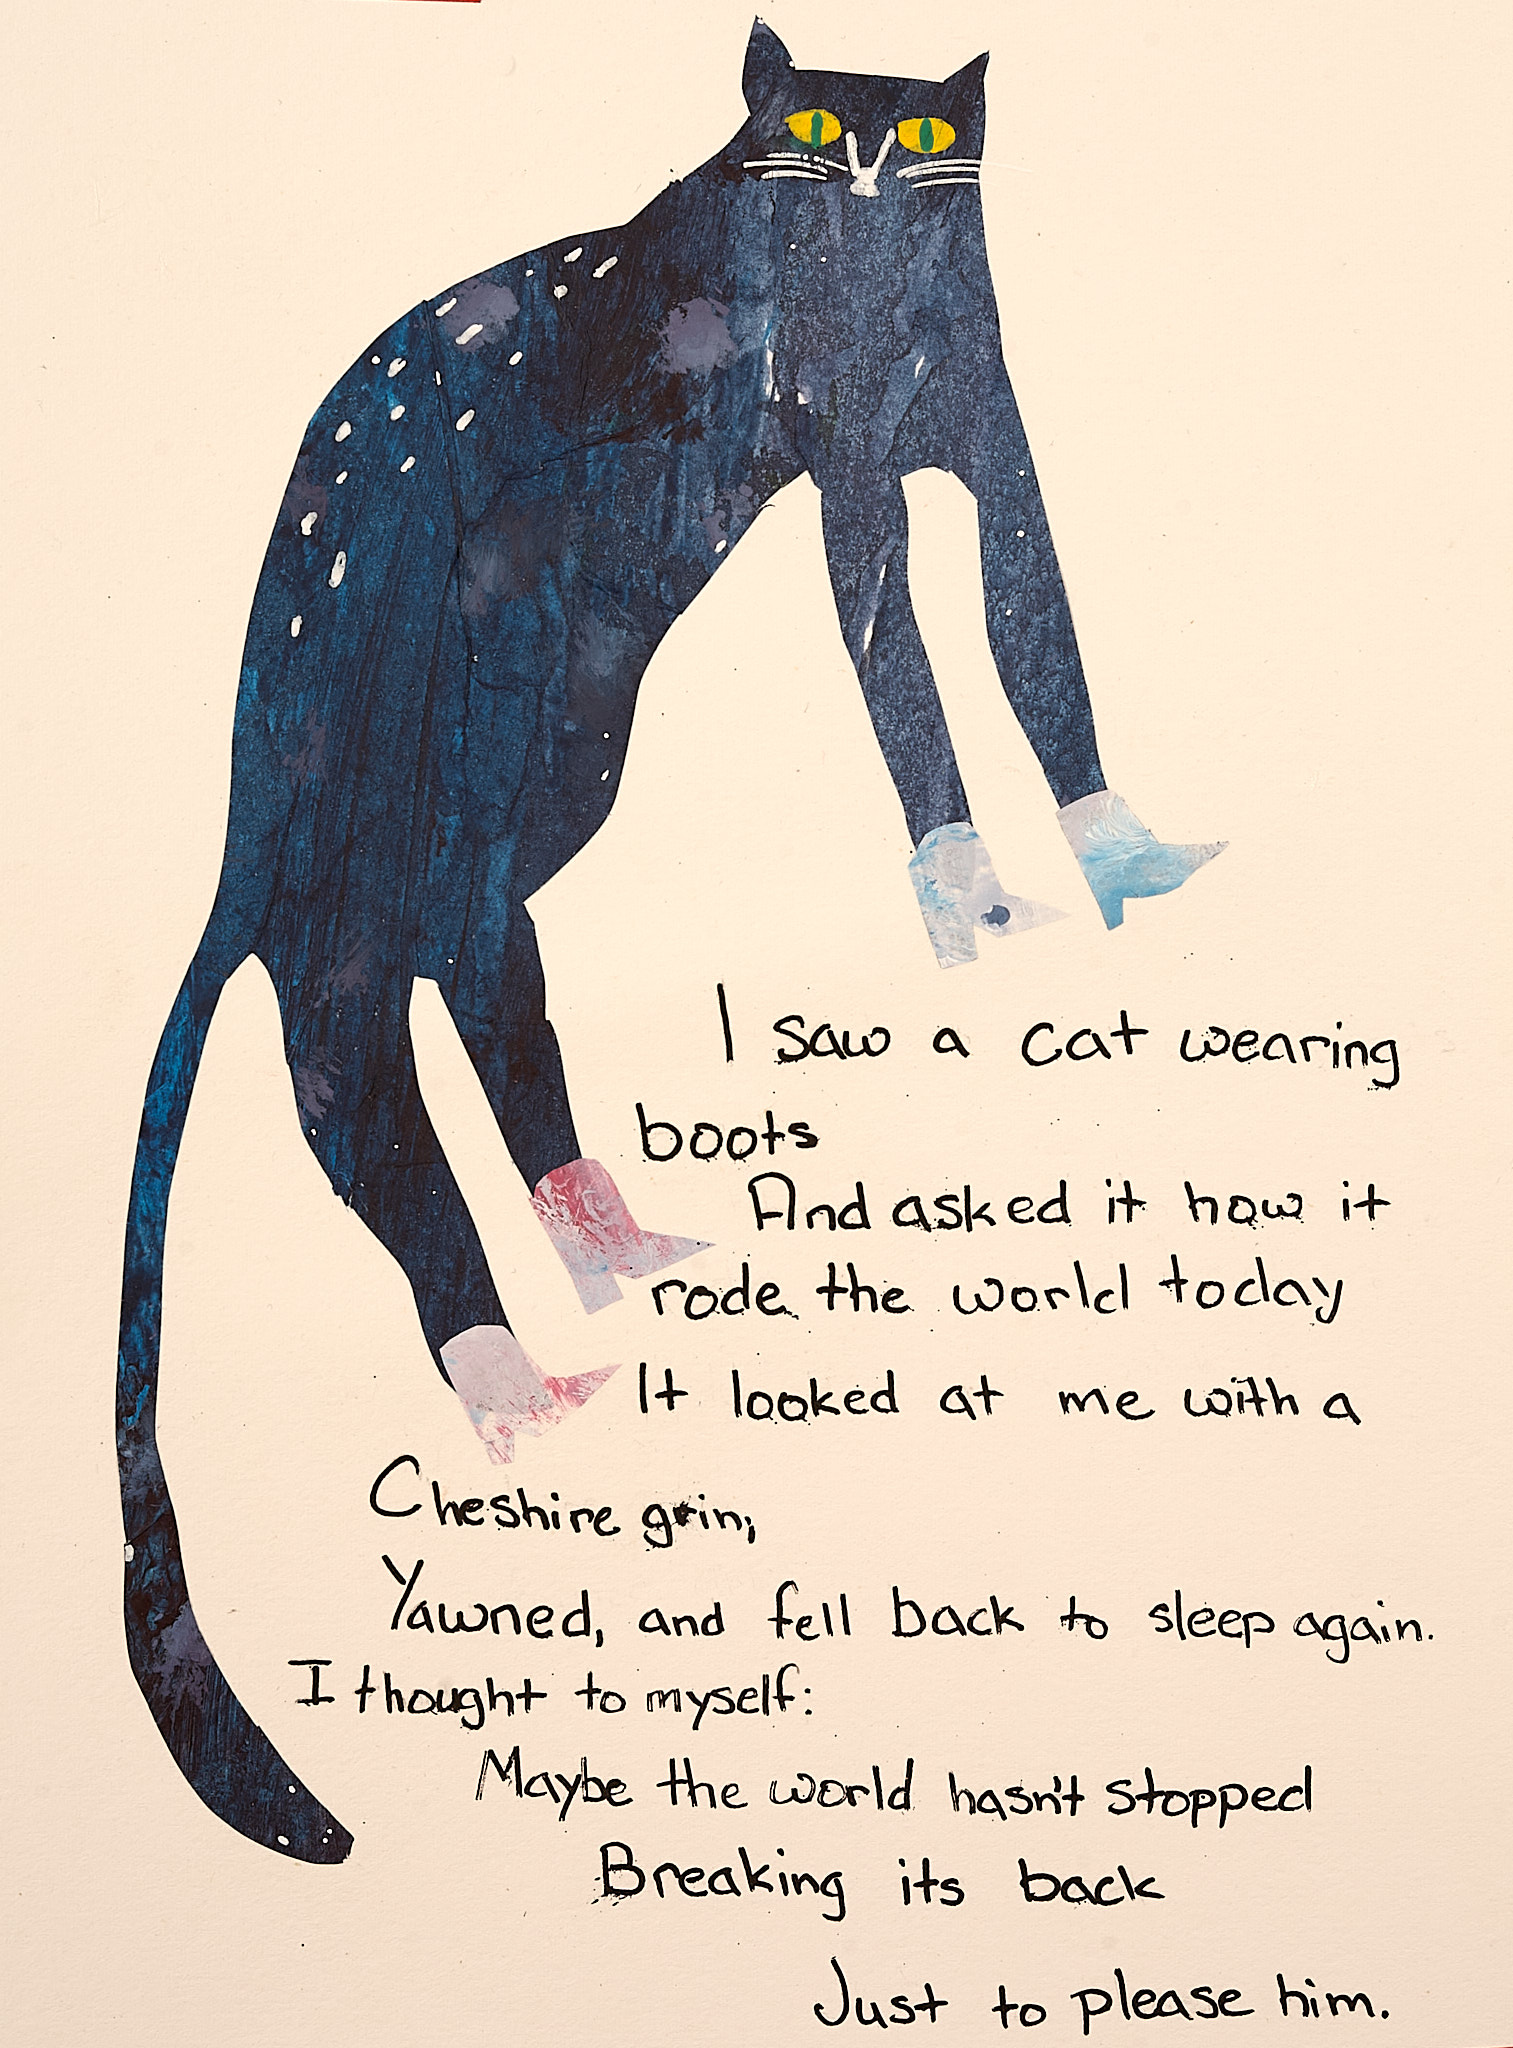 I saw a cat wearing
boots
And asked it how it
rode the world today
It looked at me with a
Cheshire grin,
Yawned, and fell back to sleep again.
I thought to myself:
Maybe the world hasn't stopped
Breaking its back
Just to please him.